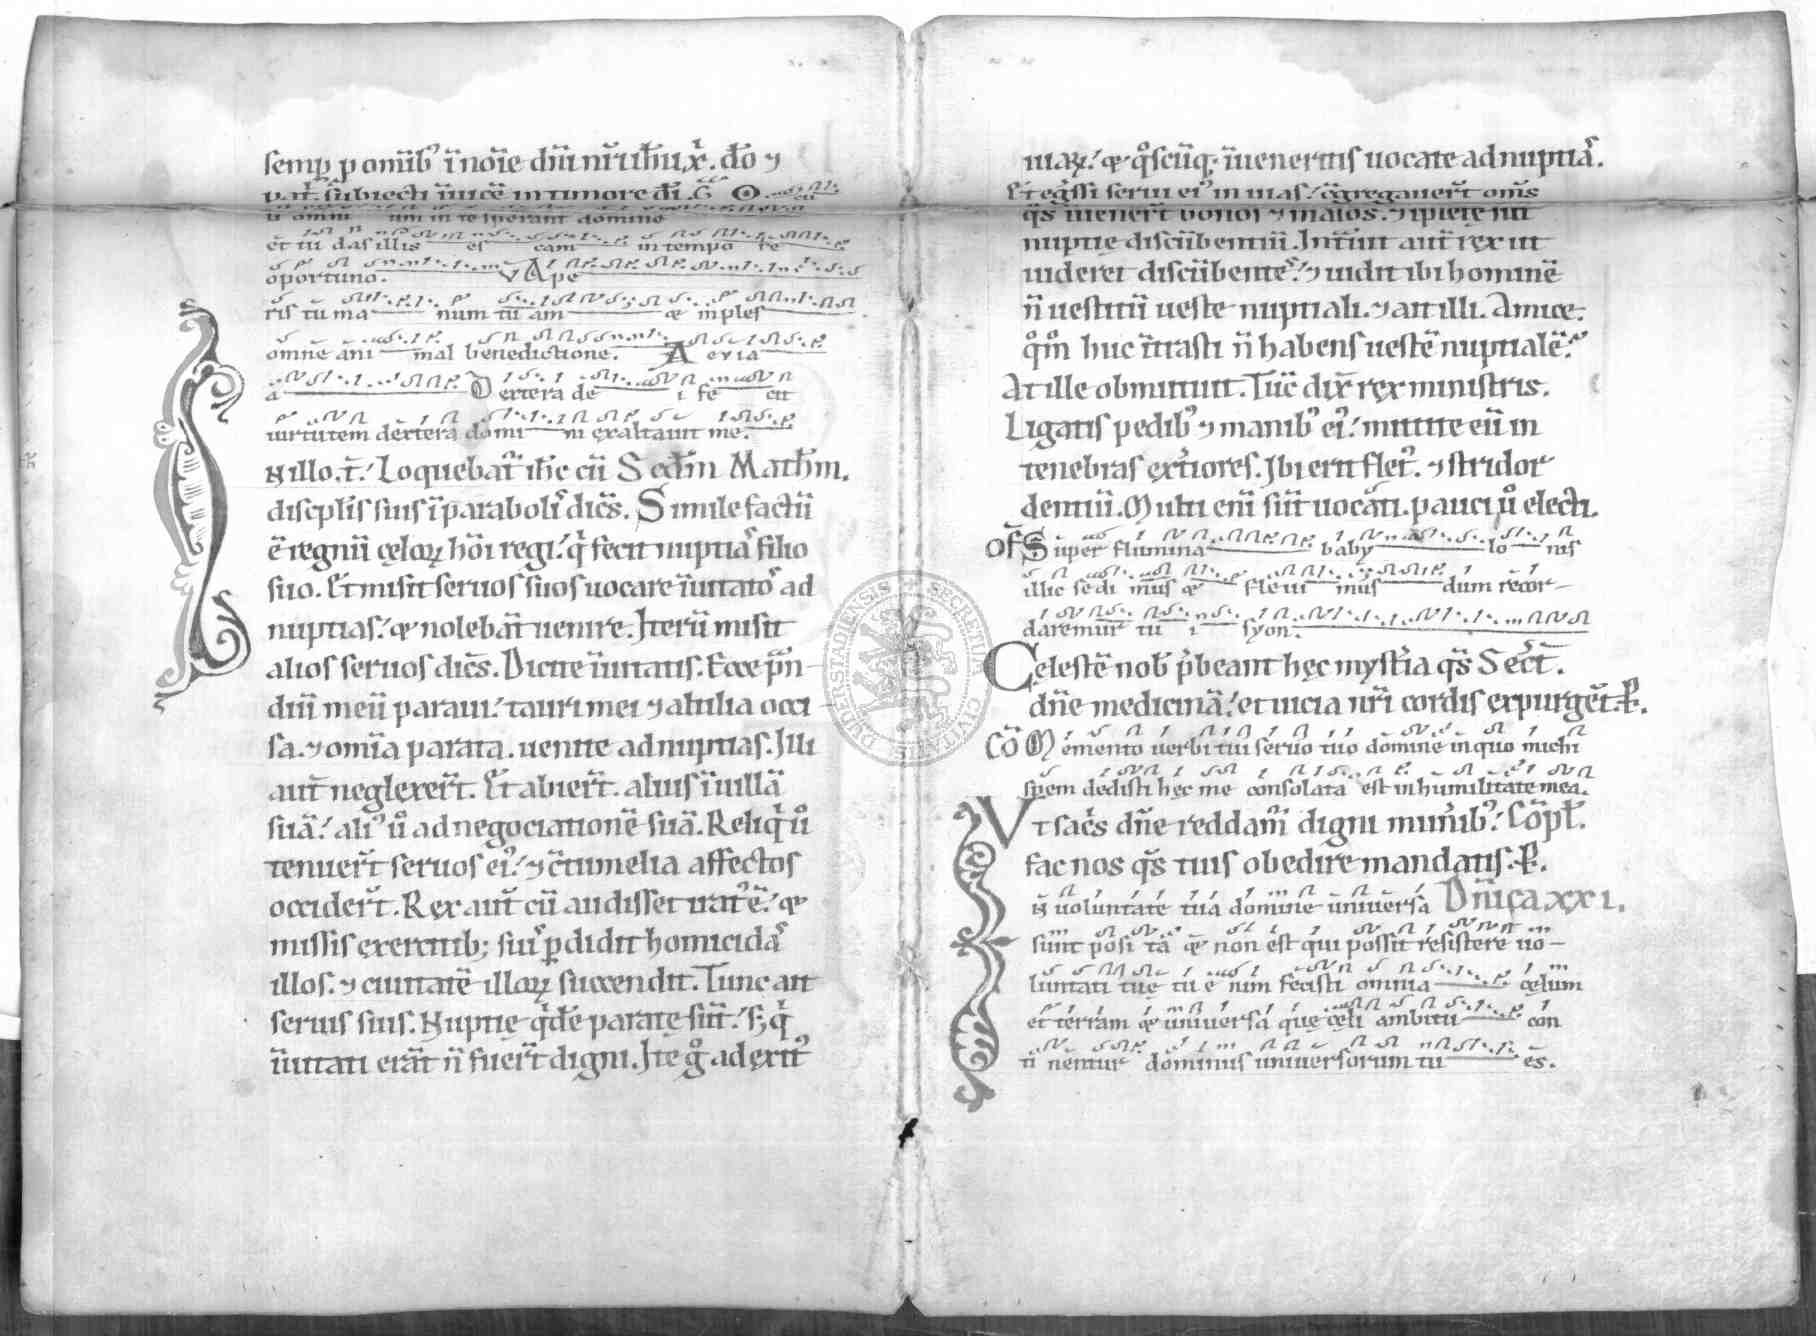 semꝑ ꝓ omībꝰ ī noīe dn̄i nr̄i ih̄u xp̄i. dō ⁊
pat̄. subiecti īuicē in timore dī. G̅ O. cu
li omni um in te sperant domine
et tu das illis es cam in tempo re
oportuno. V Ape
ris tu ma num tu am ⁊ imples
omne ani mal benedictione. A evia
a Dextera de i fe cit
uirtutem dextera domi ni exaltauit me.
N illo.t̄. Loquebat᷑ ih̄c cū Sedm̄ Math̄m.
discpl̄is suis ī parabolis dicēs. Simile factū
ē regnū cęloꝝ hōi regi. q̄ fecit nuptiaˢ filio
suo. Et misit seruos suos uocare īuitatoˢ ad
nuptias. & nolebāt uenire. Iterū misit
alios seruos dicēs. Dicite īuitatis. Ecce pran
diū meū paraui. tauri mei ⁊ altilia occi
sa. ⁊ omīa parata. uenite ad nuptias. Illi
aut̄ neglexer̄t. Et abier̄t. alius ī uillā
suā. aliꝰ ů ad negociationē suā. Reliq̄ ů
tenuer̄t seruos eiꝰ. ⁊ ↄtumelia affectos
occider̄t. Rex aut̄ cū audisset iratꝰ ē. &
missis exercitib; suiˢ ꝑdidit homicidaˢ
illos. ⁊ ciuitatē illoꝝ succendit. Tunc ait
seruis suis. Nuptię q̄dē paratę sūt. sꝫ q̄
īuitati erāt n̄ fuer̄t digni. Ite g̊ ad exitꝰ
uiaꝝ. & q̊scūq; īueneritis uocate ad nuptiaˢ.
Et eg̊ssi serui eiꝰ in uias. ↄgregauer̄t om̄s
q̊s īuener̄t bonos ⁊ malos. ⁊ īpletę sūt
nuptię discūbentiū. Intuit aut̄ rex ut
uideret discūbenteˢ. ⁊ uidit ibi hominē
n̄ uestitū ueste nuptiali. ⁊ ait illi. Amice.
q̊m̊ huc ītrasti n̄ habens uestē nuptialē.
At ille obmutuit. Tūc dix̄ rex ministris.
Ligatis pedibꝰ ⁊ manibꝰ eiꝰ. mittite eū in
tenebras extiores. Ibi erit fletꝰ. ⁊ stridor
dentiū. Multi eni sūt uocati. pauci ů electi.
Of̄ Super flumina baby lo nis
illic sedi mus & fleui mus dum recor
daremur tu i syon.
Celestē nob̄ p̄beant hęc mystīa q̄s Sect̄.
dn̄e medicinā. et uicia nr̄i cordis expurgēt. P̄.
Cō Memento uerbi tui seruo tuo domine in quo michi
spem dedisti hęc me consolata est in humilitate mea.
Vt sac̄s dn̄e reddam᷑ digni munībꝰ. Cōpl̄.
fac nos q̄s tuis obedire mandatis. P̄.
N uoluntate tua domine uniuersa Dn̄ica xxi.
sunt posi ta & non est qui possit resistere uo
luntati tuę tu e nim fecisti omnia cęlum
et terram & uniuersa quę cęli ambitu con
ti nentur dominus uniuersorum tu es.
SECRETUM CIVITATIS DUDERSTADIENSIS